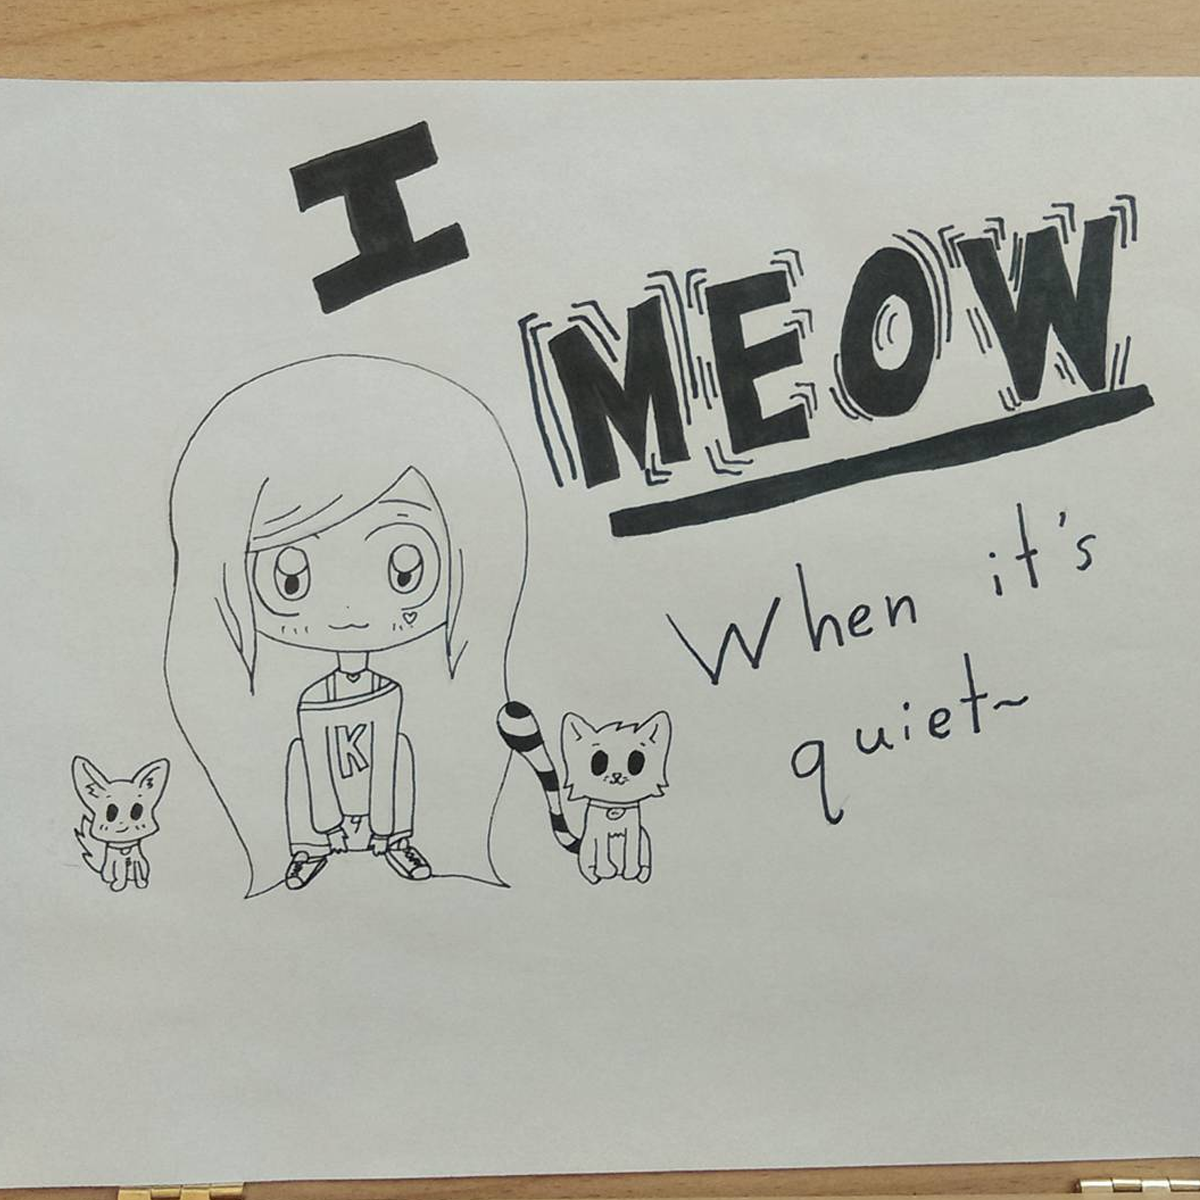 I
MEOW
When it's
quiet~
K